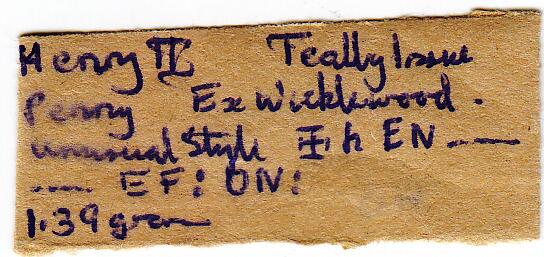 Henry III Tealby Issue
Penny Ex Wicklewood.
unusual Style h EN ——
—— EF: ON:
1.39 gram